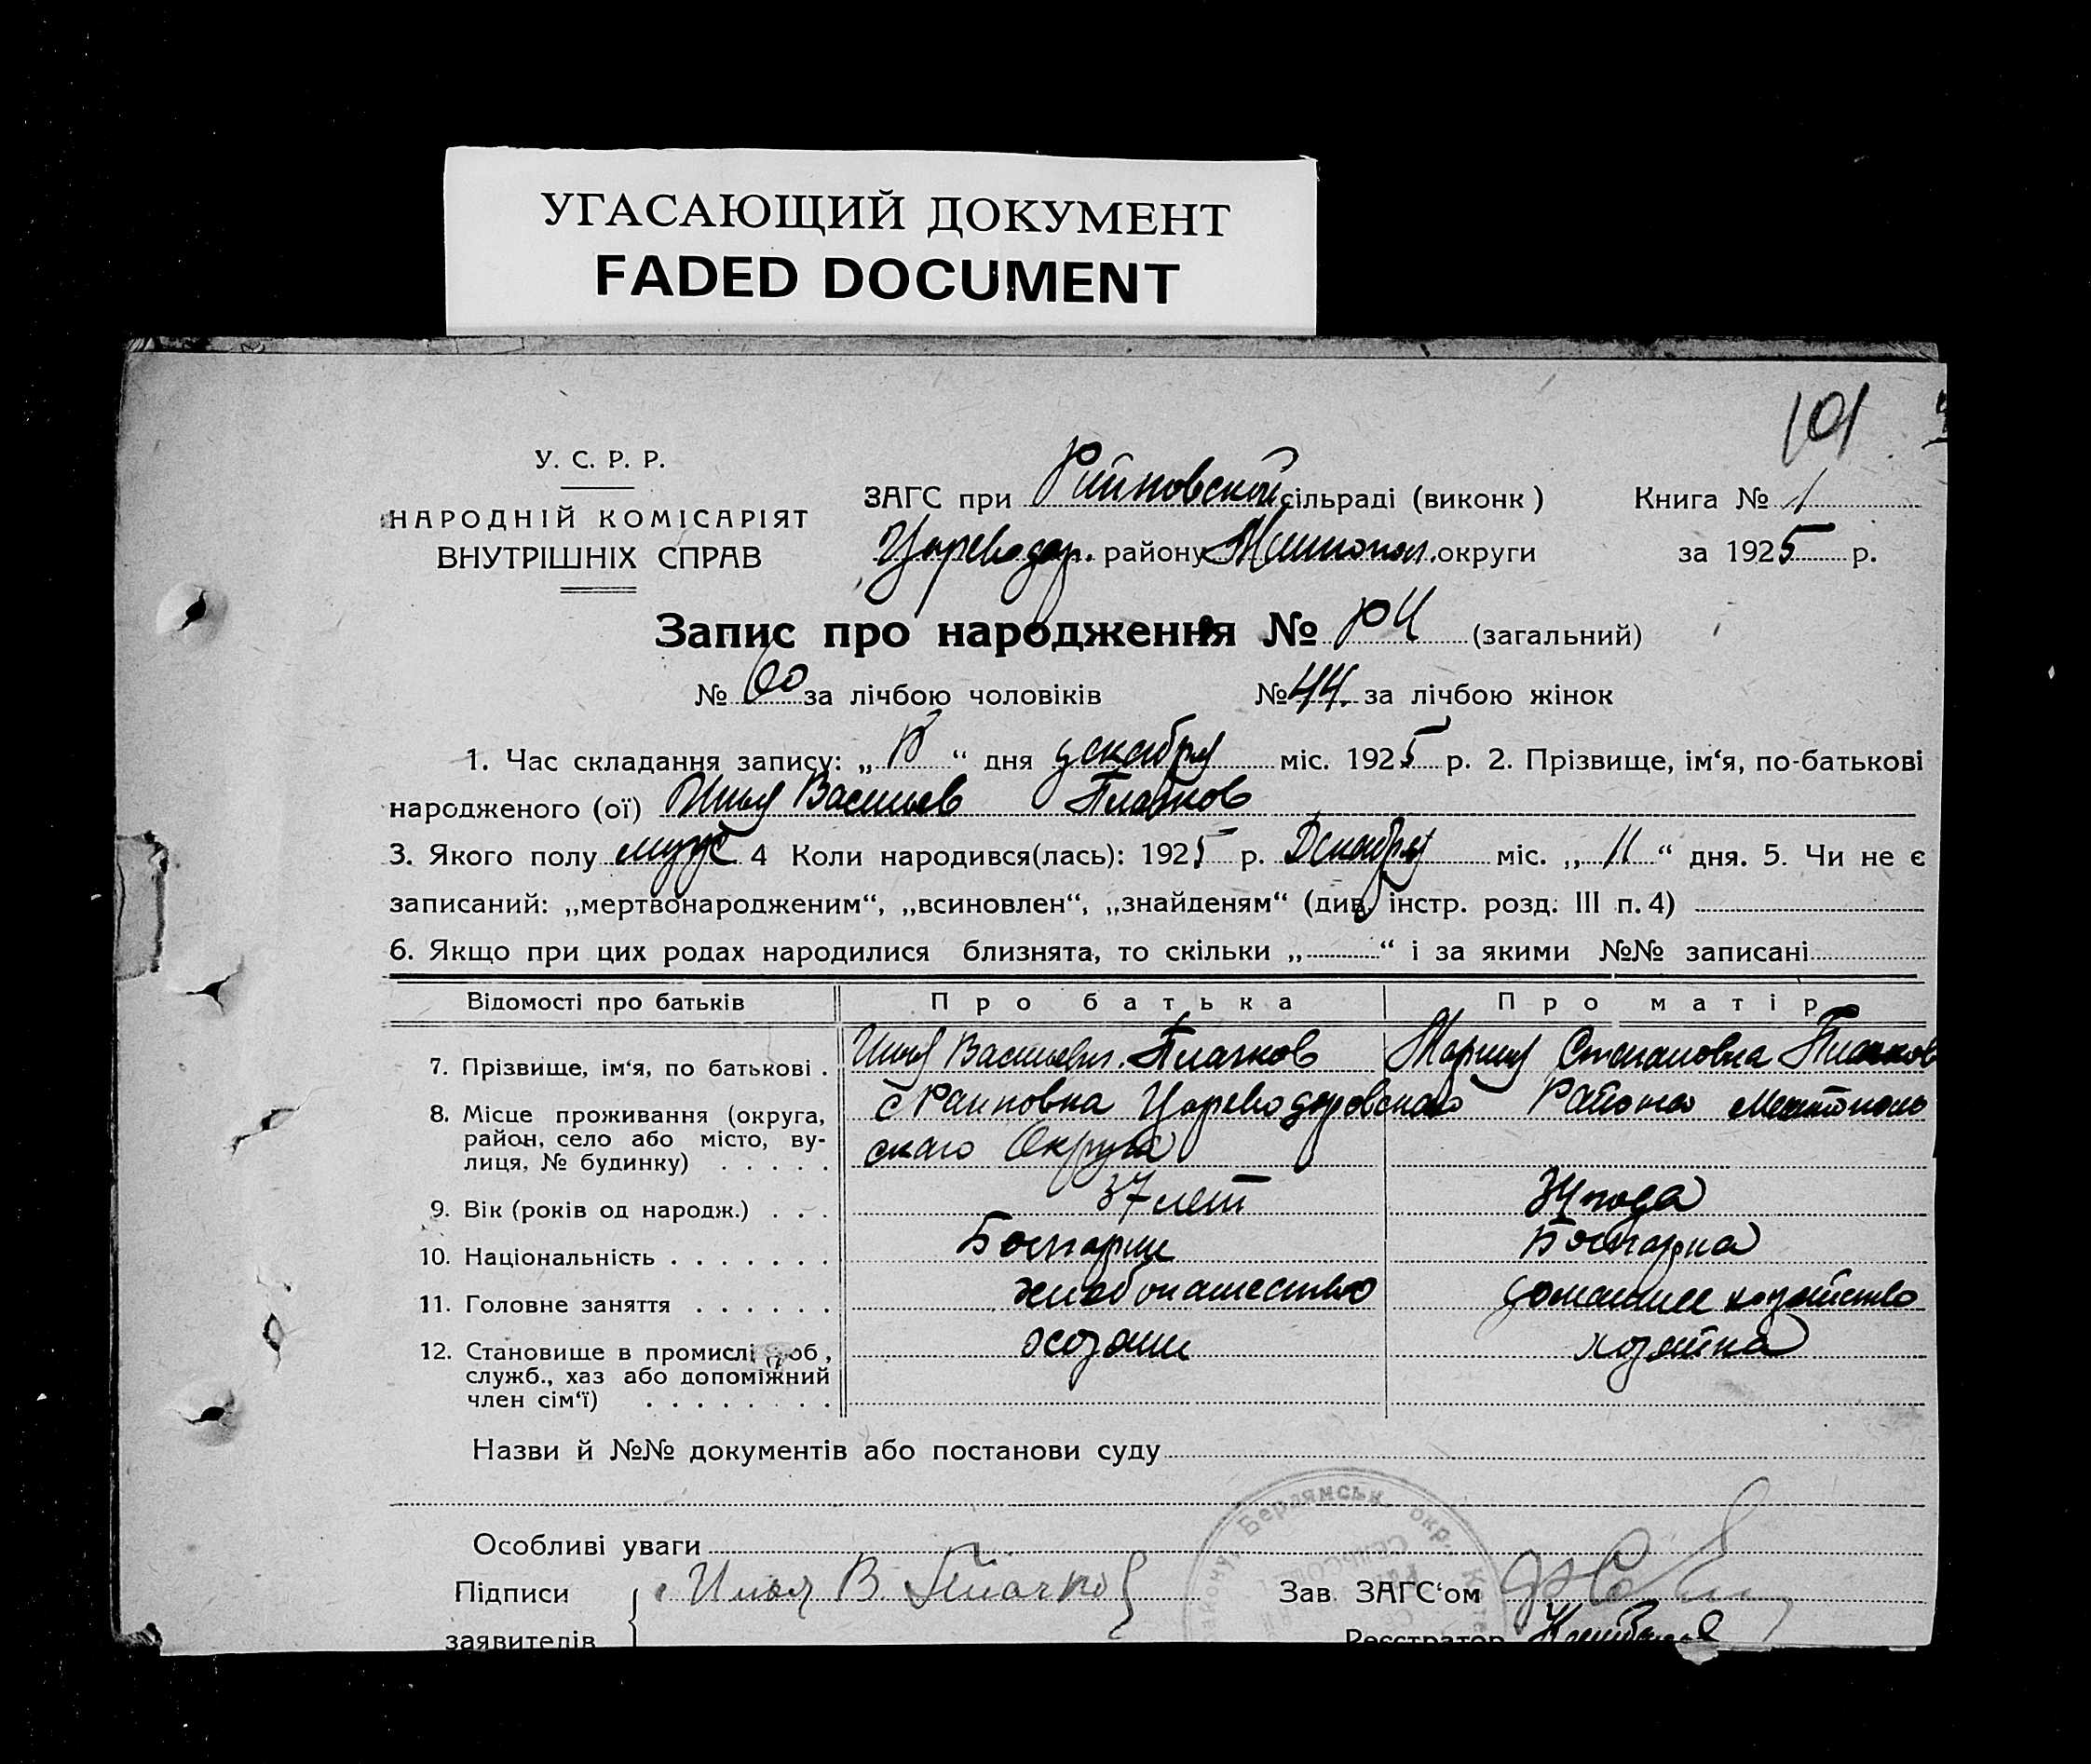 УГАСАЮЩИЙ ДОКУМЕНТ
FADED DOCUMENT
101
У. С. Р. Р.
НАРОДНІЙ КОМІСАРІЯТ
ВНУТРІШНІХ СПРАВ
ЗАГС при Райновской сільраді (виконк) Книга № 1
Цареводар. району Мелитопол. округи за 1925 р.
Запис про народження № 104 (загальний)
№ 60 за лічбою чоловіків № 44. за лічбою жінок
1. Час складання запису: „ “ дня декабря міс. 1925 р. 2. Прізвище, ім‘я, по-батькові
народженого (ої) Илья Васильев Плачков
3. Якого полу муж 4 Коли народився(лась): 1925 р. Декабря міс. „11“ дня. 5. Чи не є
записаний: „мертвонародженим“, „всиновлен“, „знайденям“ (див. інстр. розд. III п. 4)
6. Якщо при цих родах народилися близнята, то скільки „ “ і за якими №№ записані
Відомості про батьків Про батька Про матір
7. Прізвище, ім‘я, по батькові . Илья Васильевич Плачков Мария Степановна Плачков
8. Місце проживання (округа, район, село або місто, ву-лиця, № будинку) . . . . . с Раиновка Цареводаровскаго Района Мелитополь
скаго Округа
9. Вік (років од народж.) . . . 37 лет 34 года
10. Національність . . . . . . . Болгарин Болгарка
11. Головне заняття . . . . . . хлебопашество домашнее хозяйство
12. Становище в промислі роб, служб., хаз або допоміжний член сім‘ї) . . . . . . . . хозяин хозяйка
Назви й №№ документів або постанови суду
Особливі уваги
Підписи Илья В. Плачков Зав ЗАГС‘ом
заявителів Реєстратор
Бердямськ. окр.